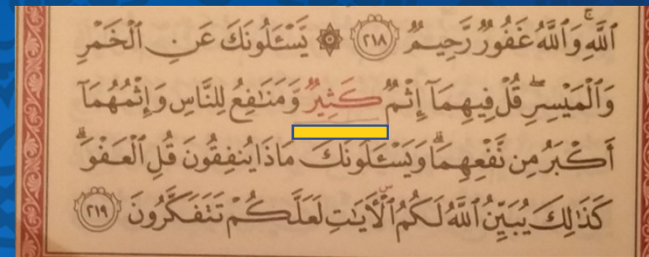 ٱللَّهِۚ وَٱللَّهُ غَفُورٞ رَّحِيمٞ ٢١٨ ۞ يَسۡـَٔلُونَكَ عَنِ ٱلۡخَمۡرِ
وَٱلۡمَيۡسِرِۖ قُلۡ فِيهِمَآ إِثۡمٞ كَثِيرٞ وَمَنَٰفِعُ لِلنَّاسِ وَإِثۡمُهُمَآ
أَكۡبَرُ مِن نَّفۡعِهِمَاۗ وَيَسۡـَٔلُونَكَ مَاذَا يُنفِقُونَ قُلِ ٱلۡعَفۡوَۗ
كَذَٰلِكَ يُبَيِّنُ ٱللَّهُ لَكُمُ ٱلۡأٓيَٰتِ لَعَلَّكُمۡ تَتَفَكَّرُونَ ٢١٩